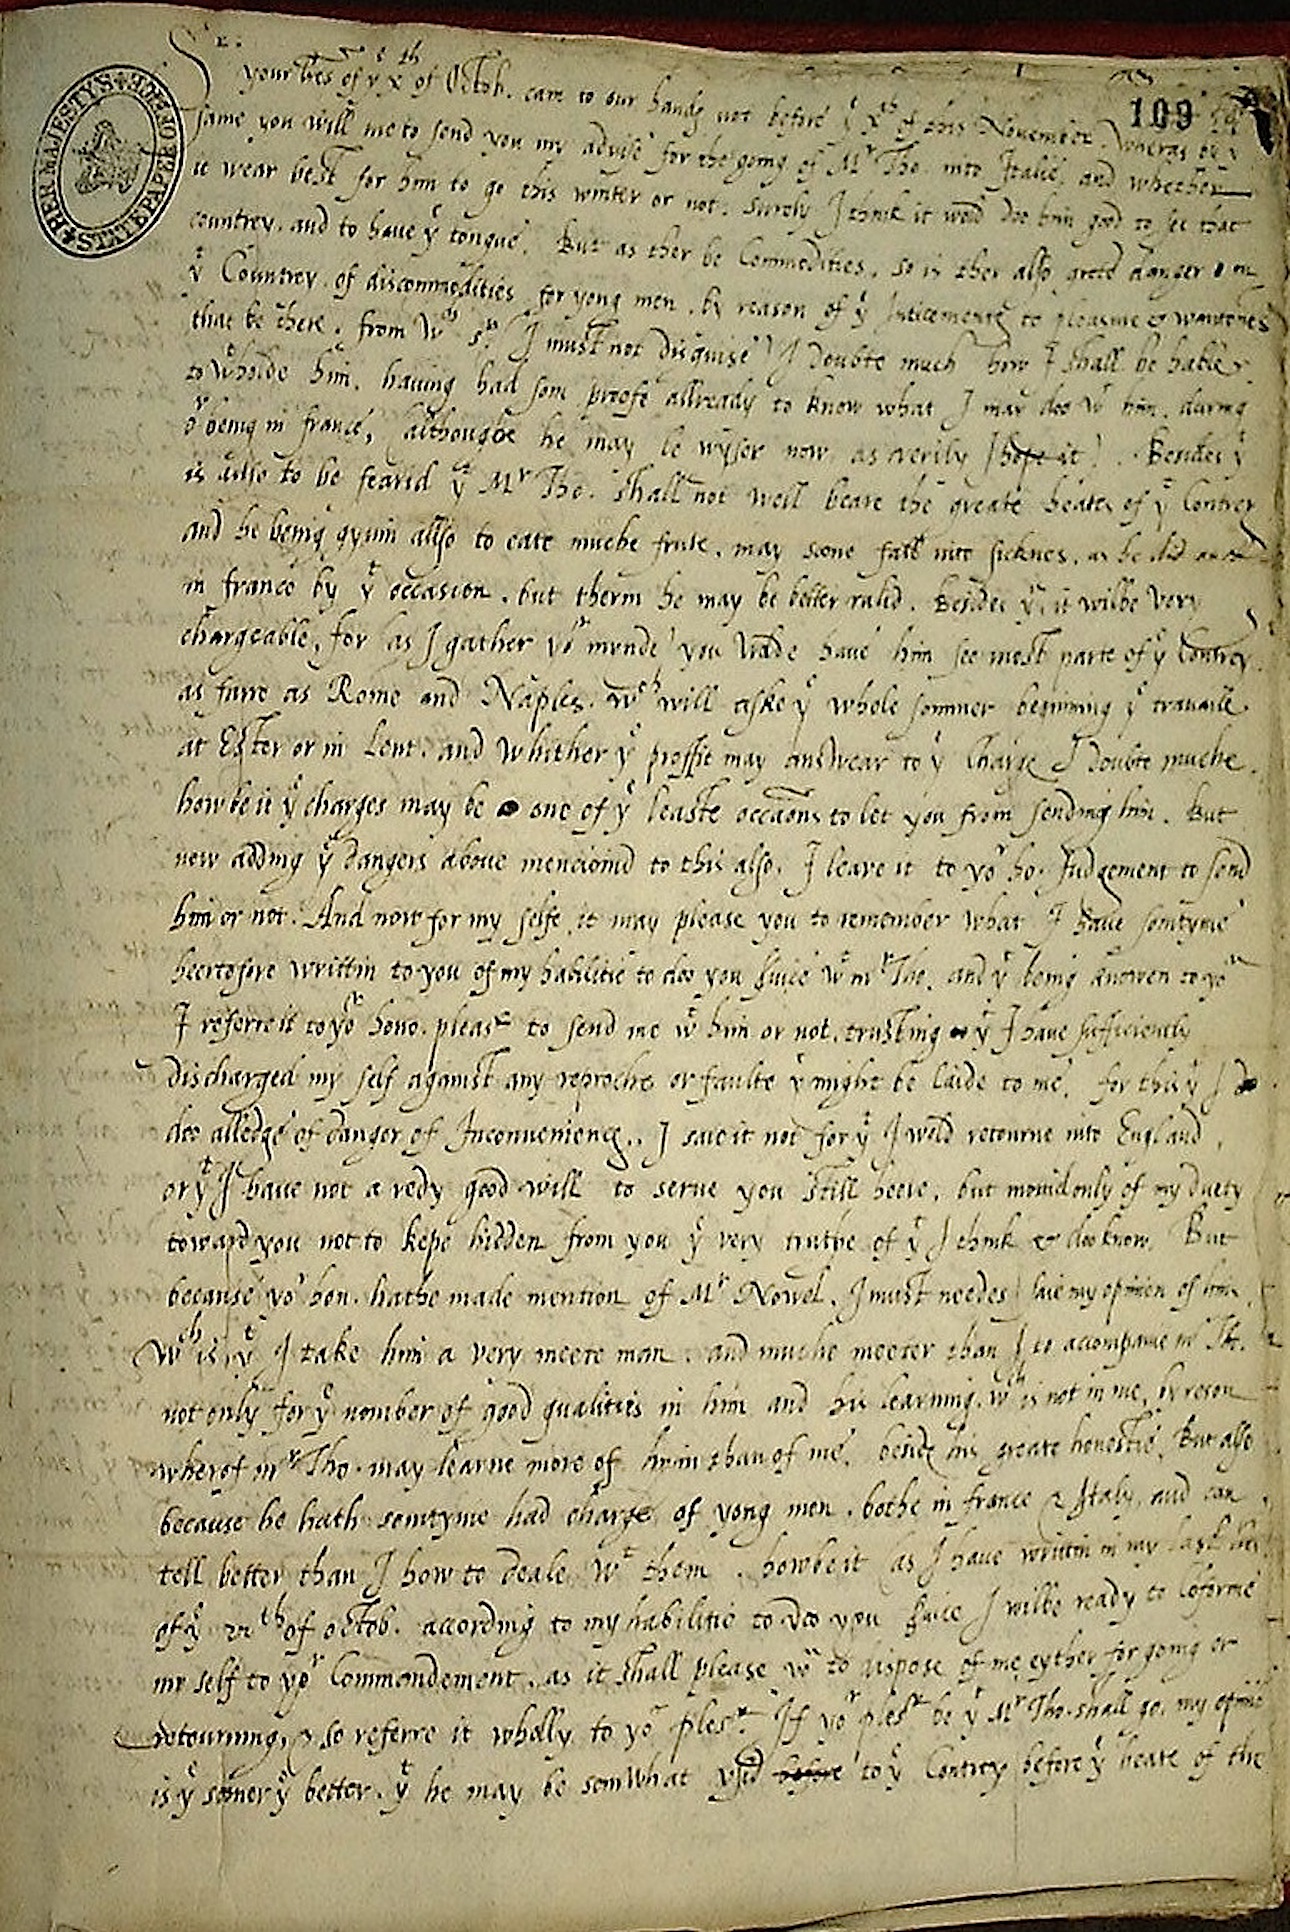 Sr.
your lres of ye xth of Octob. cam to our hands not before ye xth of this November. wheras by ye
109
HER MAJESTY'S STATE PAPER OFFICE
same you will me to send you my advise for the going of Mr Tho. into Italie, and whether
it wear best for him to go this winter or not. Surely I think it wold doo him good to see that
countrey. and to haue ye tongue. But as ther be Commodities. so is ther also greate danger in
yt Countrey of discommodities for yong men. by reason of ye Inticements to pleasure & wantones
that be there. from wch Sr. (I must not disguise) I doubte much how I shall be hable
to wtholde him. having had som proofe allready to know what I may doo wt him. during
or being in france, althoughe he may be wyser now as verily I hope it). Besides yt
is allso to be fearid yt Mr Tho. shall not well beare the greate heates of yt Contrey
and he being gyvin allso to eate muche frute. may soone fall into sicknes. as he did
in france by yt occasion. but therin he may be better rulid. Besides yt, it wilbe very
chargeable, for as I gather yor mynde you wolde haue him see most parte of ye Contrey.
as farre as Rome and Naples. wch will aske ye whole sommer beginning ye travaile
at Ester or in Lent. and whither ye proffit may answear to ye Charge I doubte muche.
howbeit ye charges may be one of ye leaste occasions to let you from sending him. But
now adding ye dangers aboue mencioind to this also. I leave it to yor ho. Judgement to send
him or not. And now for my selfe, it may please you to remember what I haue somtyme
heertofore writtin to you of my habilitie to doo you service wt mr Tho. and yt being knowen to you
I referre it to yor hono. pleasr to send me wt him or not. trusting yt I haue sufficiently
discharged my self against any reproche or faulte yt might be laide to me. for this yt I do
doo alledge of danger of Inconveniences. I saie it not for yt I wold retourne into England,
or yt I haue not a redy good will to serue you still heere. but movid only of my duety
toward you not to kepe hidden from you ye very truthe of yt I think & doo know. But
because yor hon. hathe made mention of Mr Nowel. I must needes saie my opinion of him.
wch is, yt I take him a very meete man. and muche meeter than I to accompanie mr Th.
not only for ye nomber of good qualities in him and his learning. wch is not in me, by reson
wherof mr Tho. may learne more of him than of me. beside his greate honestie. But also
because he hath somtyme had charge of yong men. bothe in france & Italy. and can
tell better than I how to deale wt them. howbeit as I haue writtin in my last lres
of ye th of octob. according to my habilitie to doo you service I wilbe ready to Coforme
my self to yor Commandement. as it shall please you to dispose of me eyther for going or
retourning, & so referre it wholly to yor plesr. If yor plesr be yt Mr Tho. shall go. my opinio
is ye sooner ye better. yt he may be somwhat usid before to ye Contrey before ye heate of the